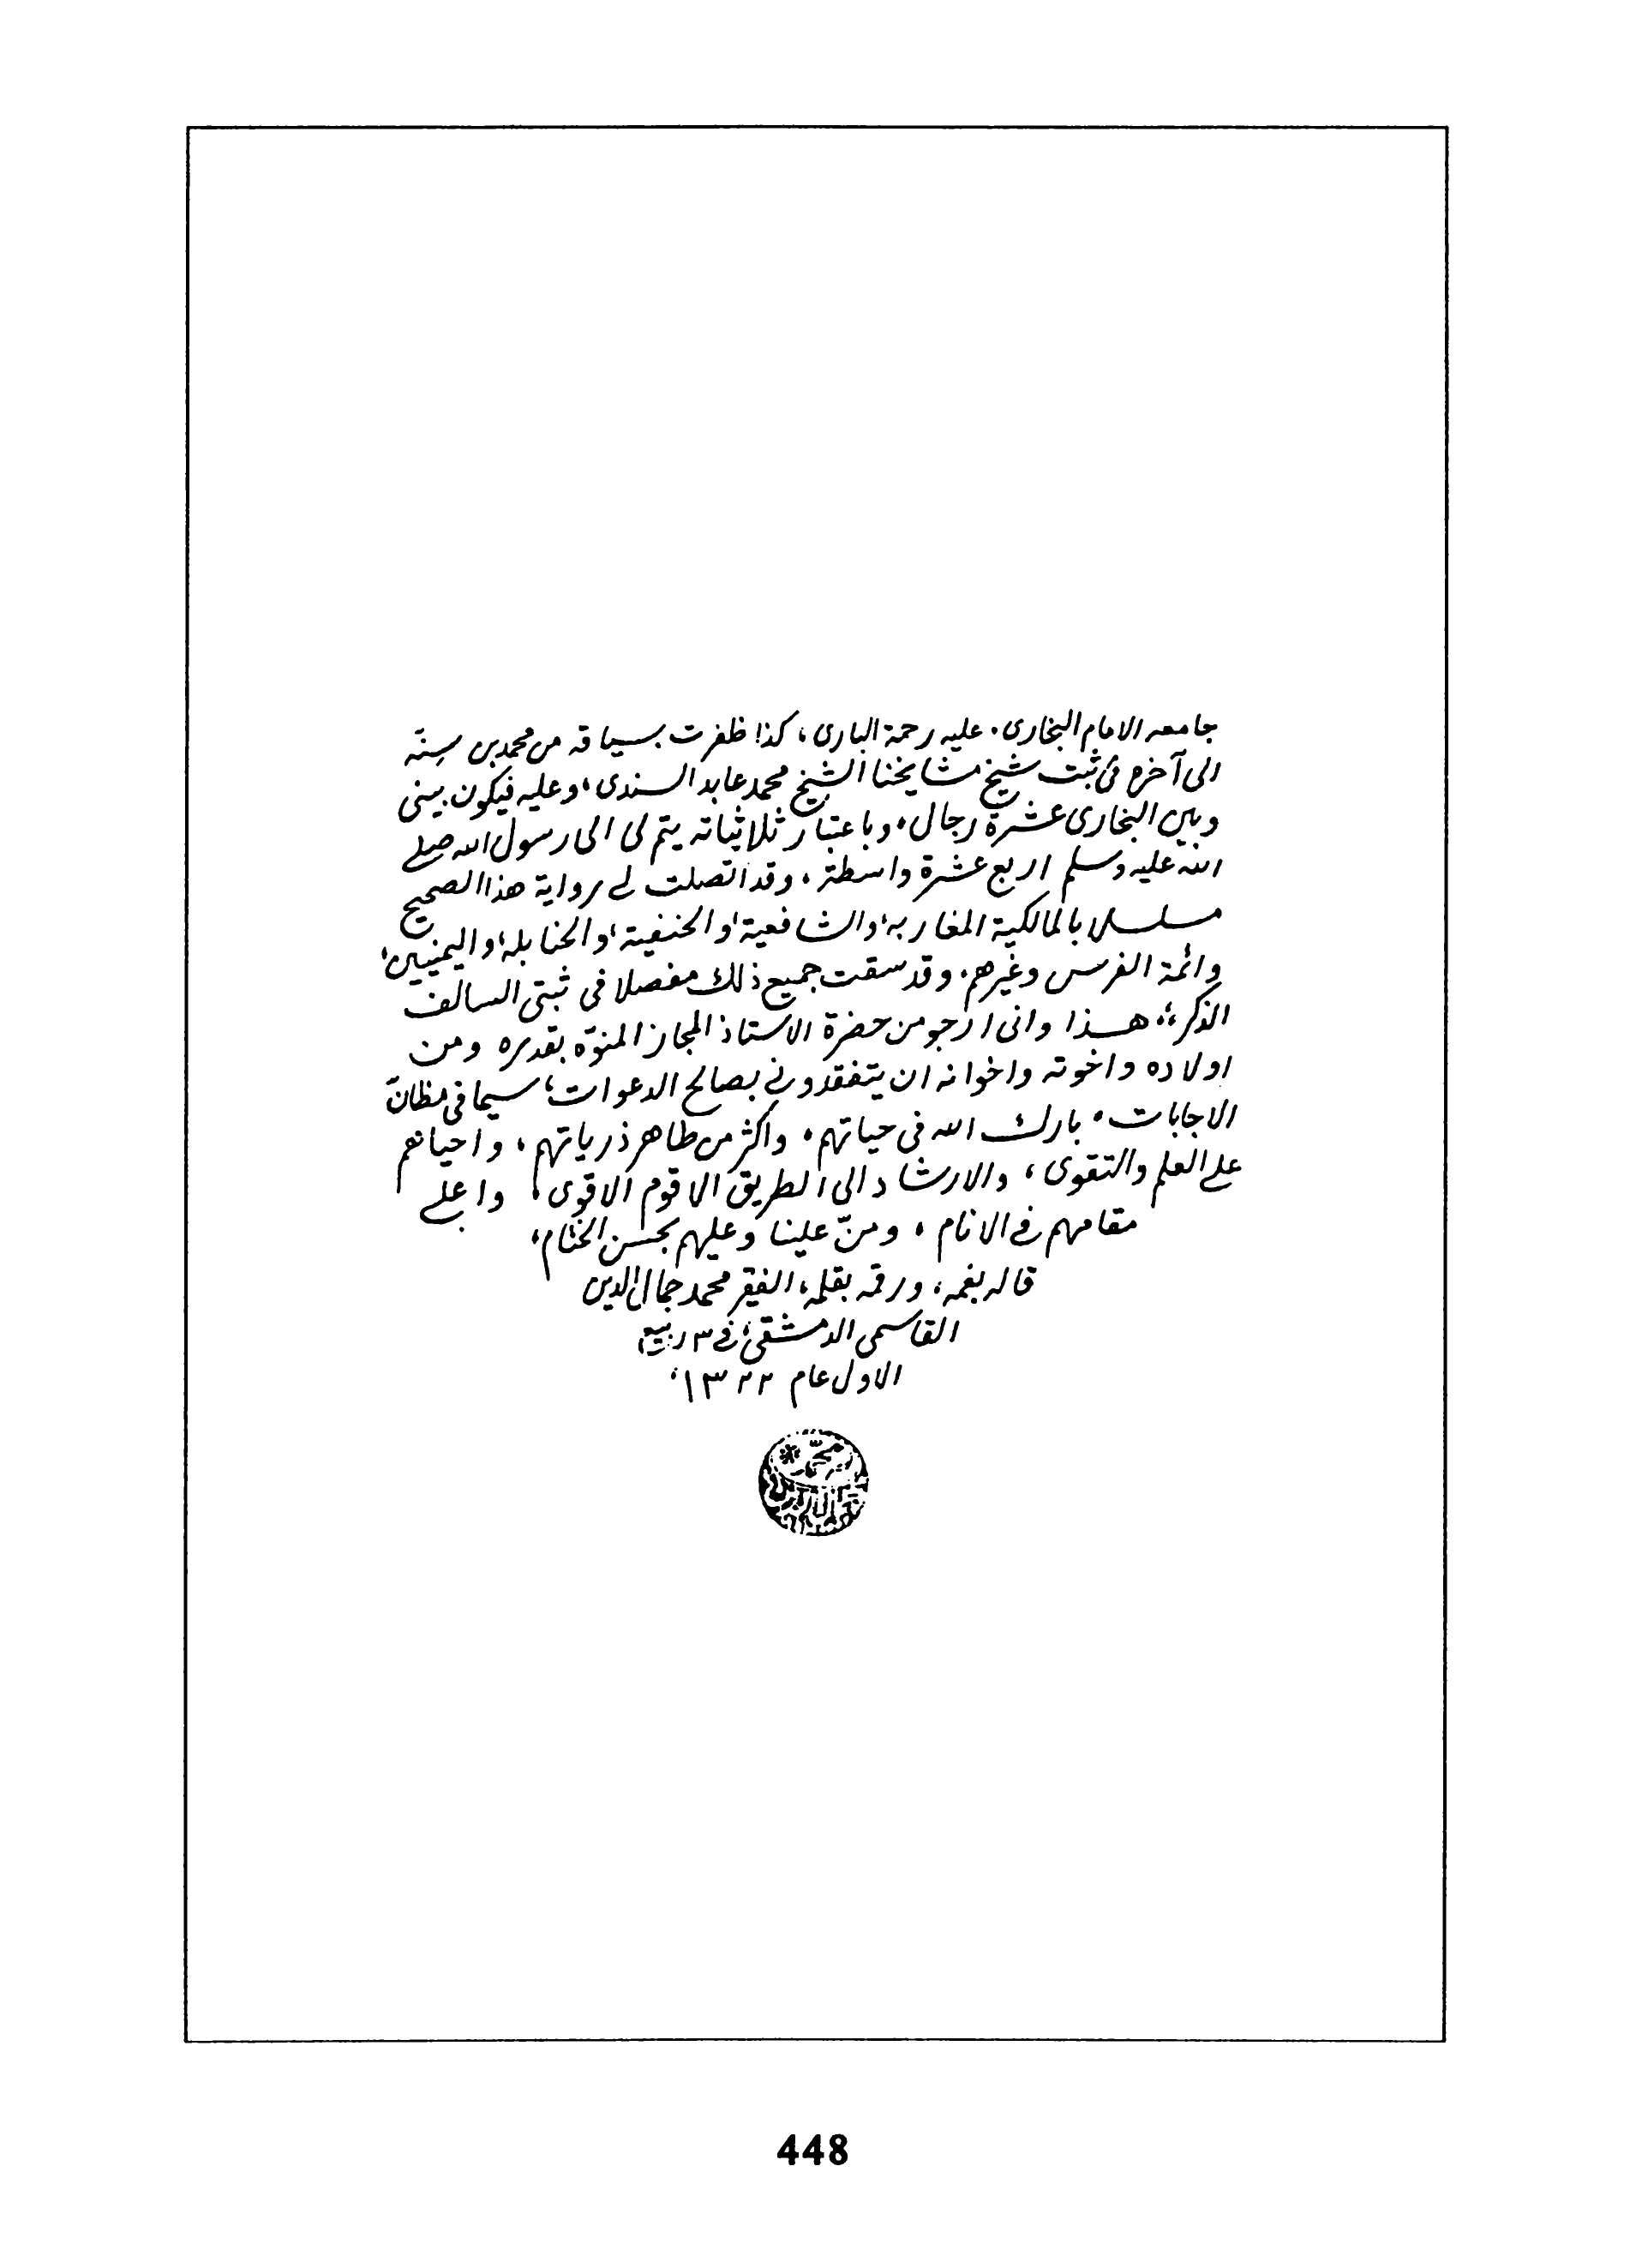 جامعه الامام البخارى. عليه رحمة البارى، كذا ظفرت بسياقه من محمد بن سنّه
الى آخره فى ثبت شيخ مشايخنا الشيخ محمد عابد السندى، وعليه فيكون بينى
وبين البخارى عشرة رجال، وباعتبار ثلاثياته يتم لى الى رسول الله صلى
الله عليه وسلم اربع عشرة واسطة، وقد اتصلت لى رواية هذا الصحيح
مسلسلا بالمالكية المغاربه، والشافعية، والحنفية، والحنابله، واليمنيين،
وائمة الفرس وغيرهم، وقد سقت جميع ذلك مفصلا فى ثبتى السالف
الذكر،، هذا وانى ارجو من حضرة الاستاذ المجاز المنوّه بقدره ومن
اولاده واخوته واخوانه ان يتفقدونى بصالح الدعوات، سيما فى مظانّ
الاجابات، بارك الله فى حياتهم، واكثر من طاهر ذرياتهم، واحيانهم
على العلم والتقوى، والارشاد الى الطريق الاقوم الاقوى، واعلى
مقامهم فى الانام، ومنّ علينا وعليهم بحسن الختام،
قاله بفمه، ورقمه بقلمه، الفقير محمد جمال الدين
القاسمى الدمشقى، فى ٣ ربيع
الاول عام ١٣٢٢،
محمد
448